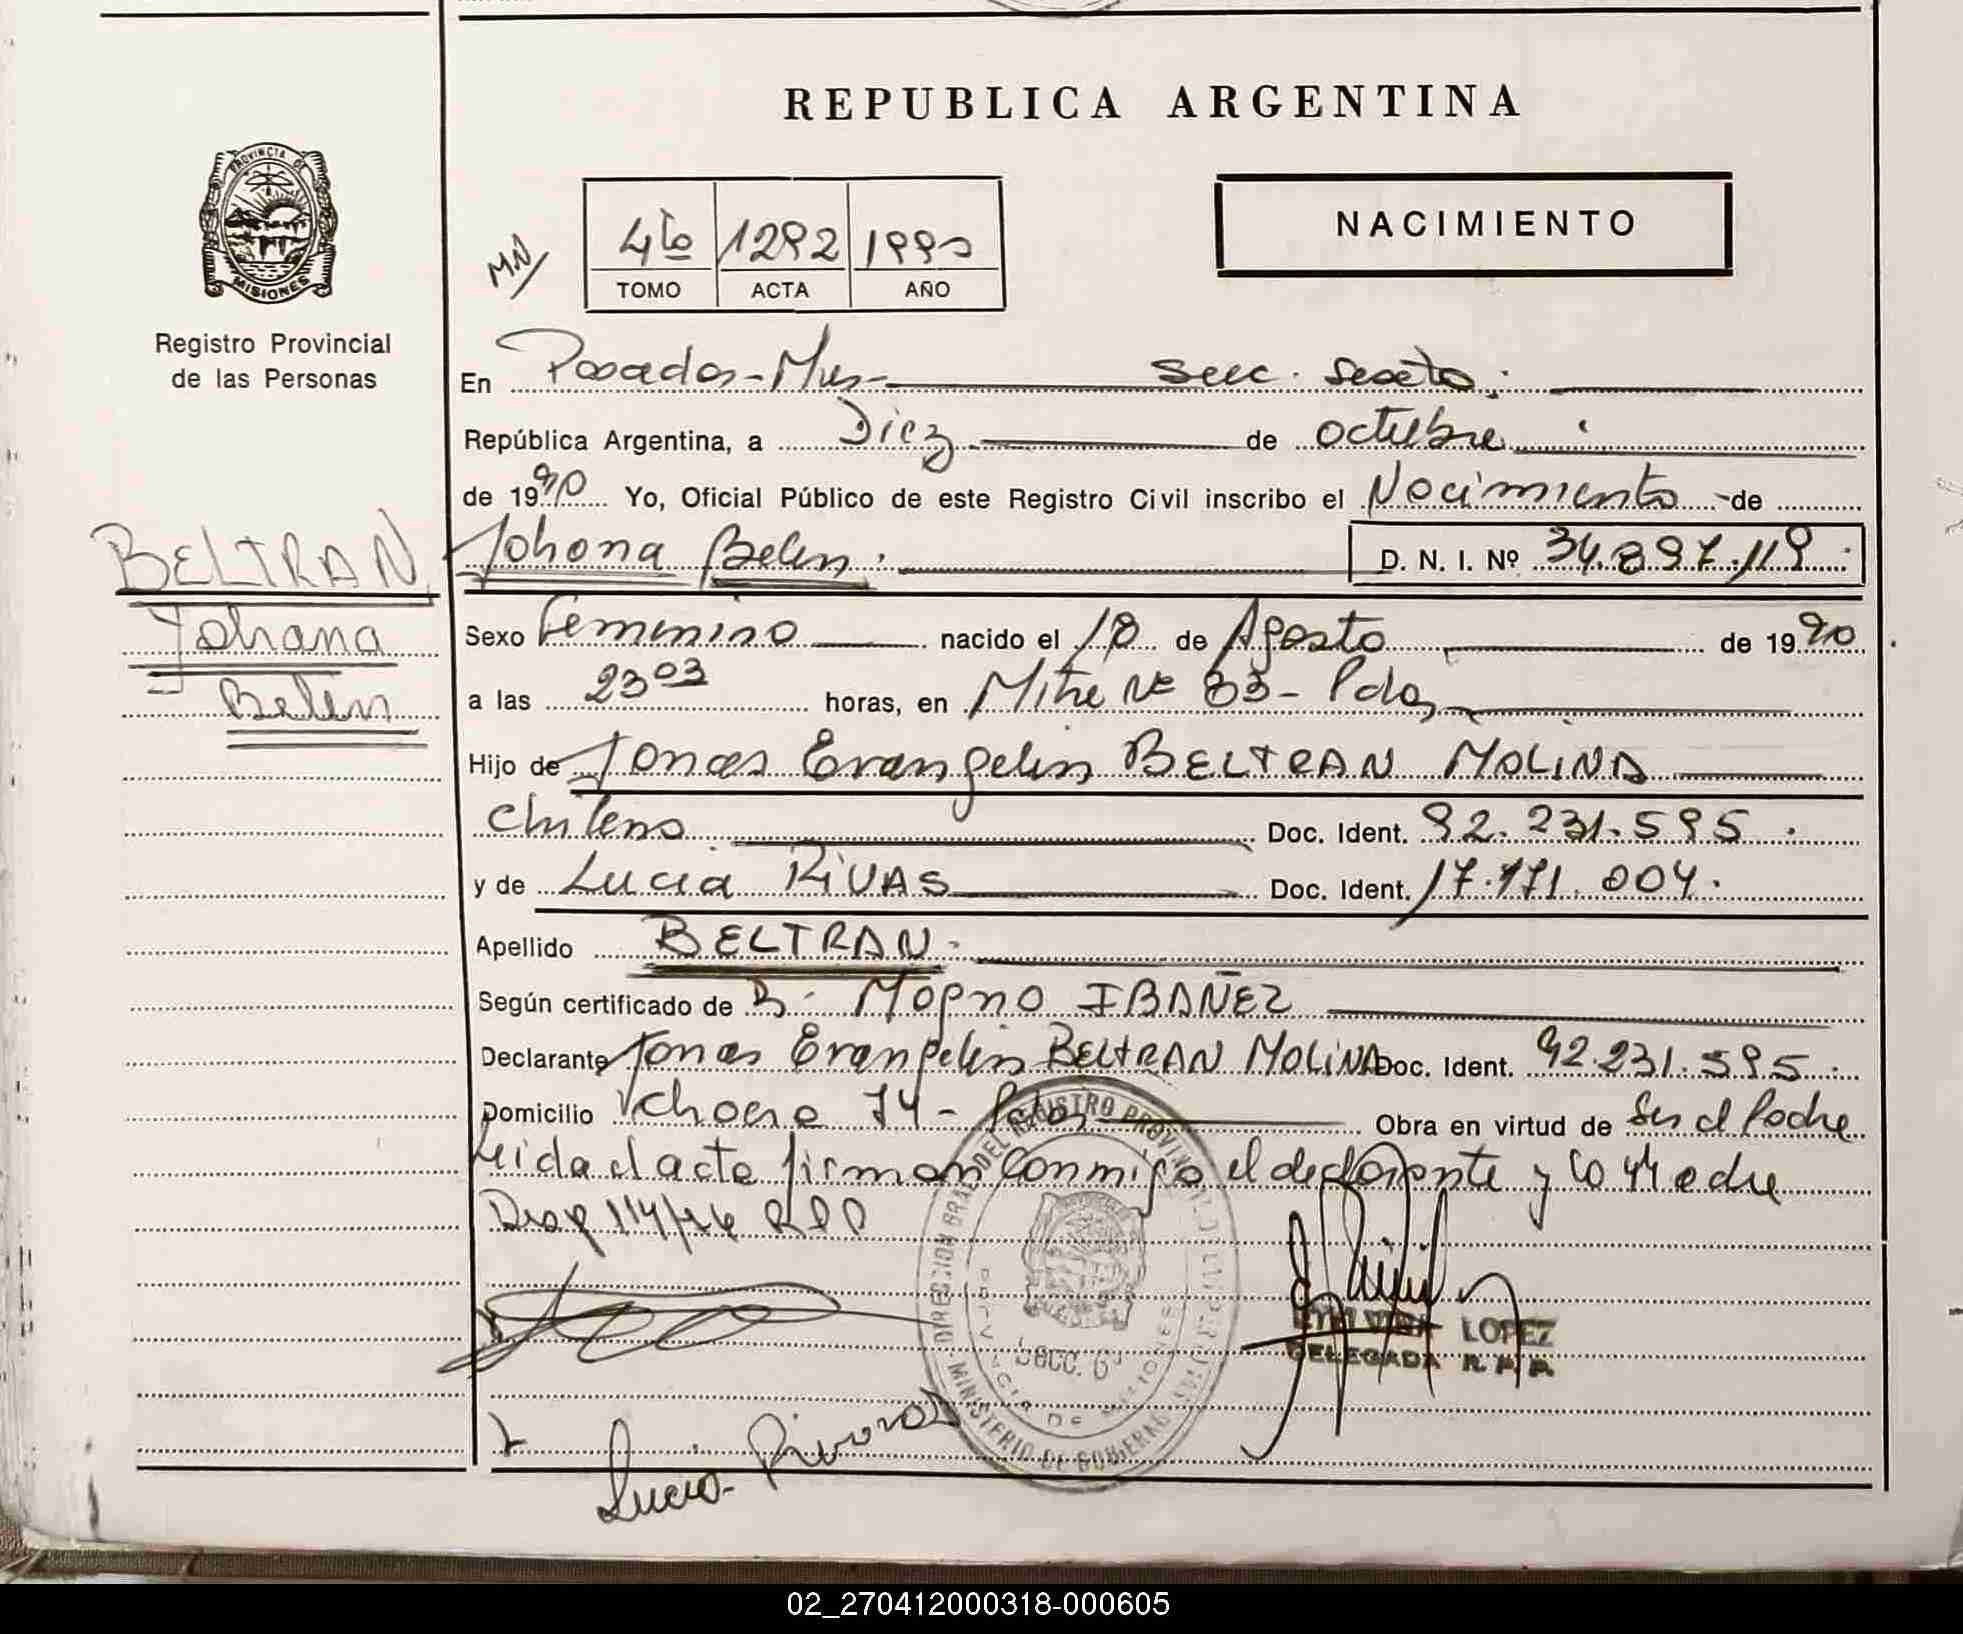 REPUBLICA ARGENTINA
PROVINCIA DE
MISIONES
Registro Provincial
de las Personas
NACIMIENTO
MN
4to 1292 1990
TOMO ACTA AÑO
En Posadas-Mnes- secc. sexta.
República Argentina, a Diez de octubre
de 1990 Yo, Oficial Público de este Registro Civil inscribo el Nacimiento de
BELTRAN
Johana
Belen
Johana Belen. D. N. I. Nº 34.897.119.
Sexo Femenino nacido el 18 de Agosto de 1990
a las 23 03 horas, en Mitre Nº 33- Pdas
Hijo de Jonas Evangelin BELTRAN MOLINA
chileno Doc. Ident. 92.231.595.
y de Lucia RIVAS Doc. Ident. 17.171.004.
Apellido BELTRAN.
Según certificado de IBAÑEZ
Declarante Jonas Evangelin BELTRAN MOLINA Doc. Ident. 92.231.595.
Domicilio 74- Pdas Obra en virtud de Ser el Padre
Leida el acta firman conmigo el declarante y la Madre
114/
LOPEZ
DELEGADA
SECC. 6
PROVINCIA DE MISIONES
DIRECCION GRAL DEL REGISTRO PROVINCIAL DE
MINISTERIO DE GOBIERNO
Lucia
02_270412000318-000605